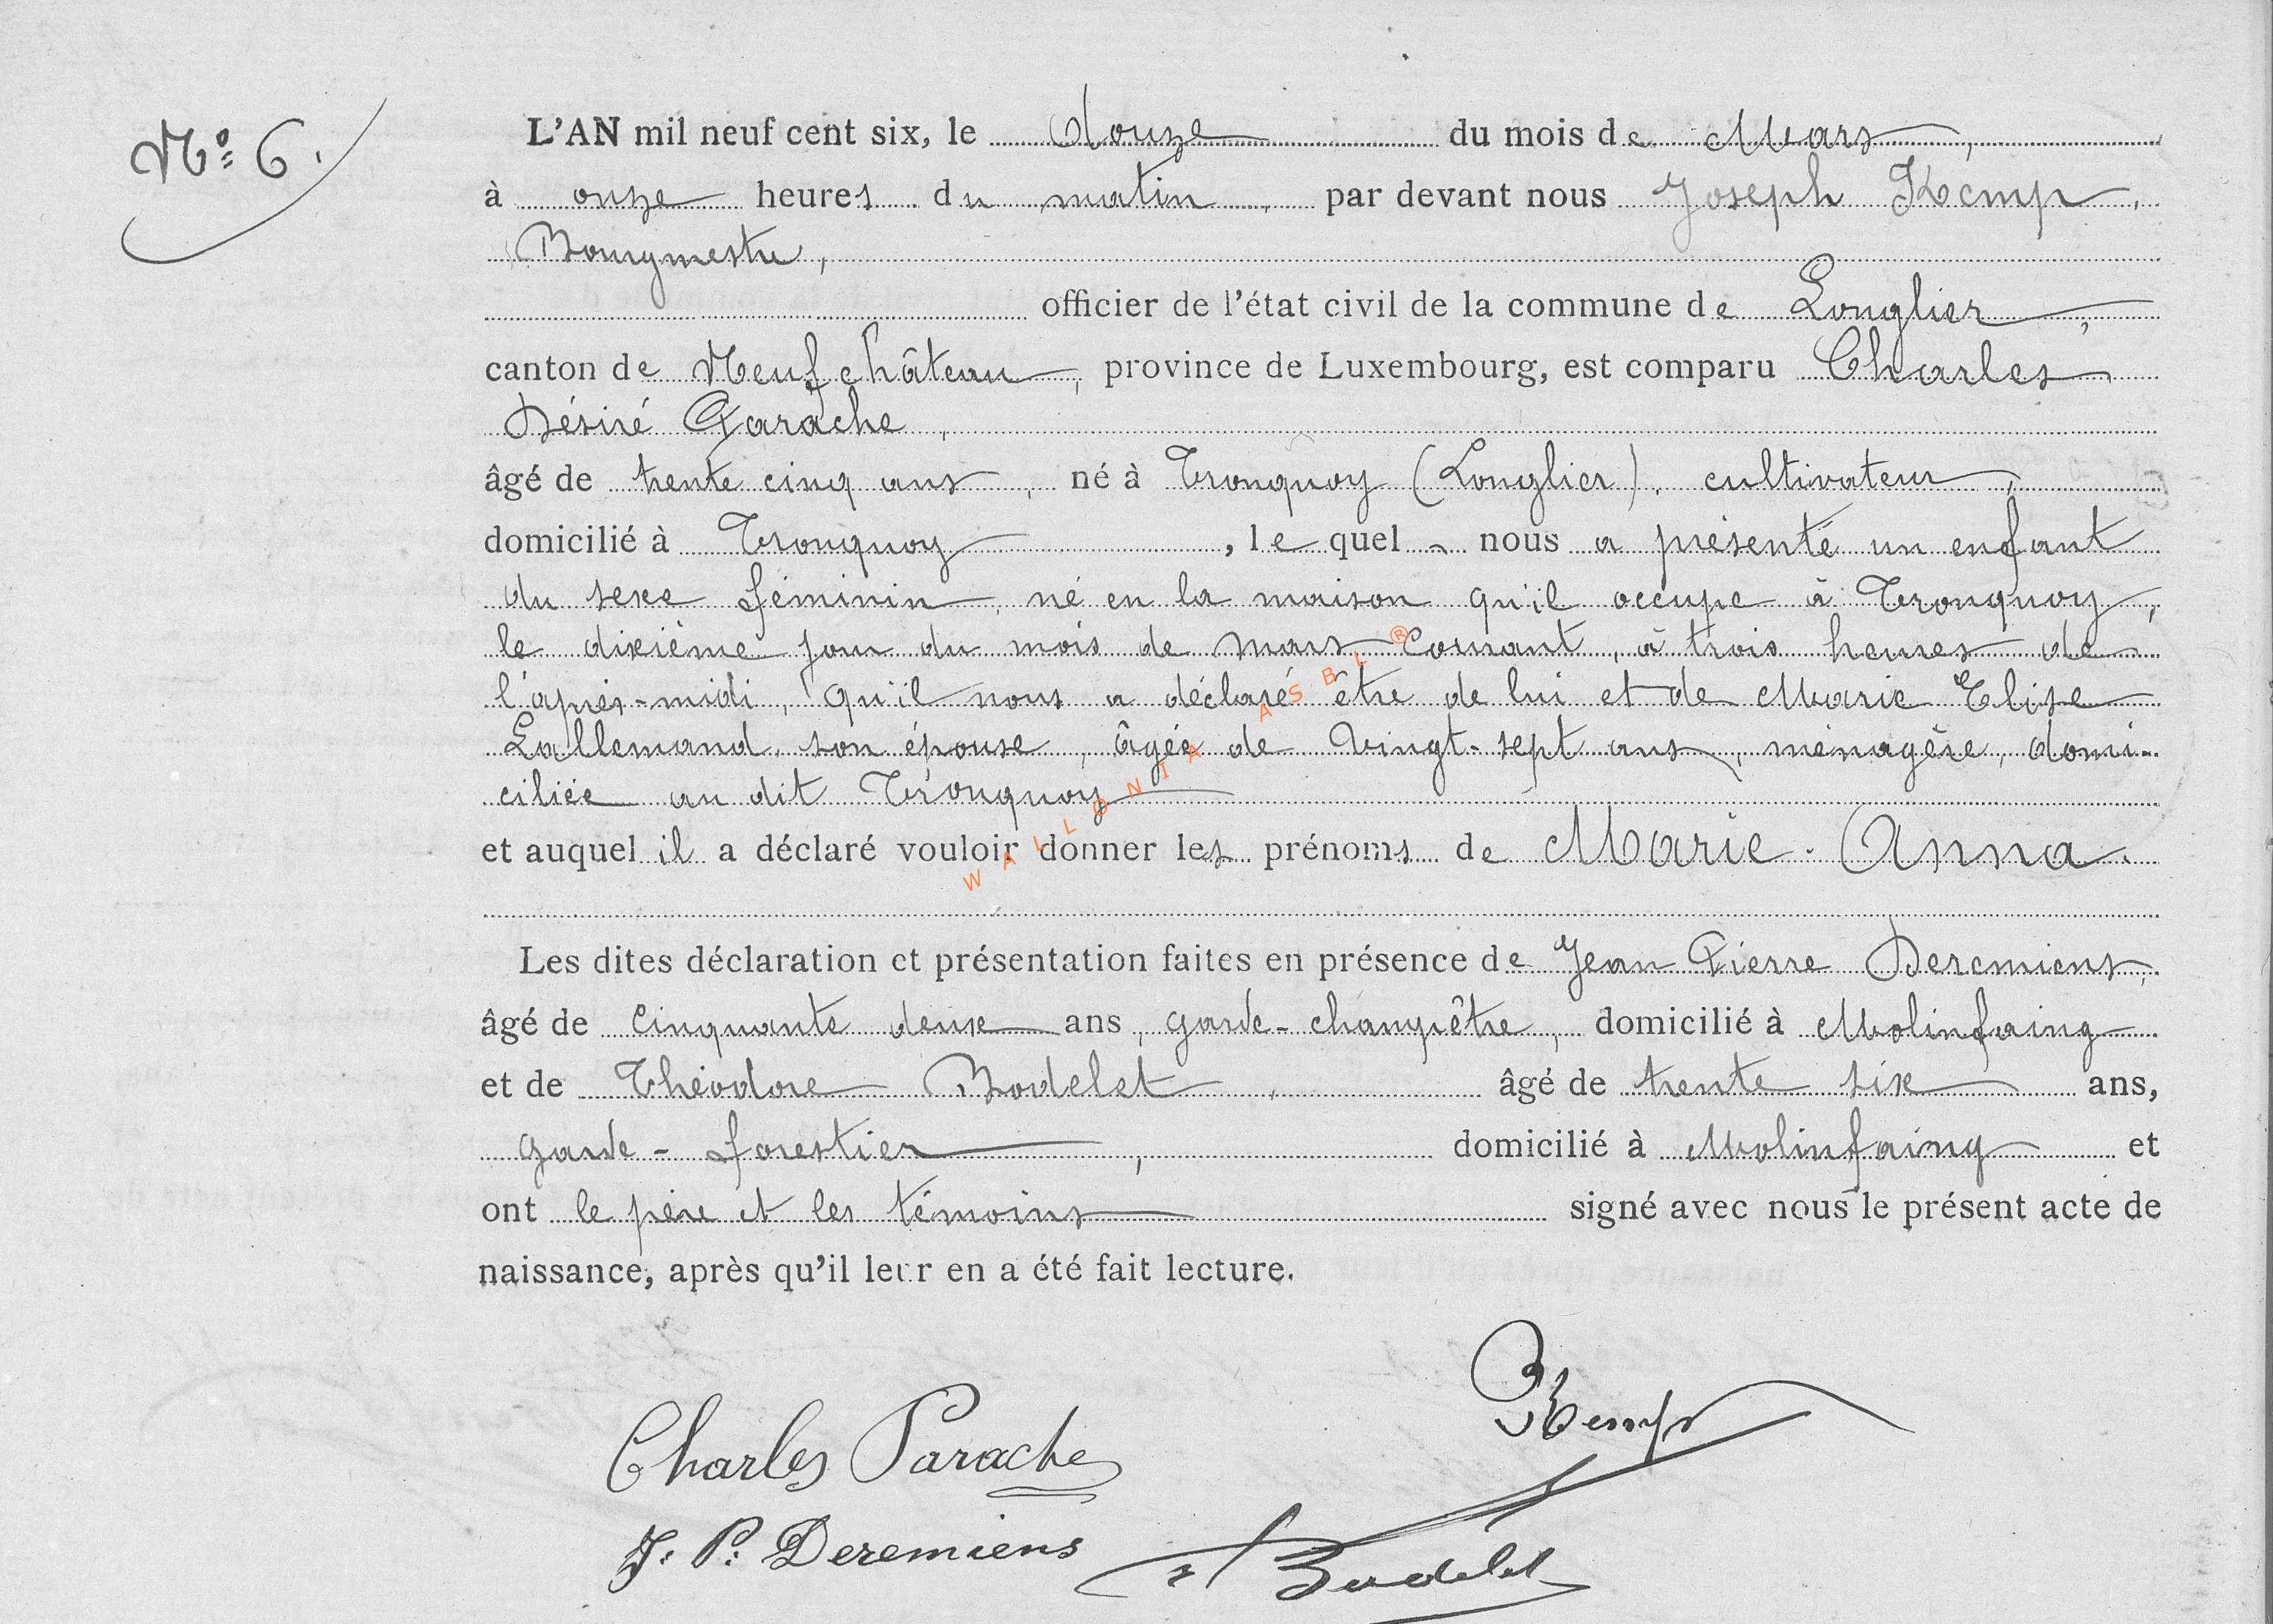 Nº 6.
L'AN mil neuf cent six, le douze du mois de Mars,
à onze heures du matin, par devant nous Joseph Kemp,
Bourgmestre,
officier de l'état civil de la commune de Longlier,
canton de Neufchâteau, province de Luxembourg, est comparu Charles
Désiré Parache,
âgé de trente cinq ans, né à Tronquoy (Longlier), cultivateur,
domicilié à Tronquoy, le quel nous a présenté un enfant
du sexe féminin, né en la maison qu'il occupe à Tronquoy,
le dixième jour du mois de mars Courant, à trois heures de
l'après-midi, qu'il nous a déclaré être de lui et de Marie Elise
Lallemand, son épouse, âgée de vingt-sept ans, ménagère, domi-
ciliée au dit Tronquoy
et auquel il a déclaré vouloir donner les prénoms de Marie-Anna.
Les dites déclaration et présentation faites en présence de Jean Pierre Deremiens,
âgé de cinquante deux ans, garde-champêtre, domicilié à Molinfaing
et de Théodore Bodelet, âgé de trente six ans,
garde-forestier, domicilié à Molinfaing et
ont le père et les témoins signé avec nous le présent acte de
naissance, après qu'il leur en a été fait lecture.
Kemp
Charles Parache
J. P. Deremiens
Bodelet
WALLONIA ASBL ®